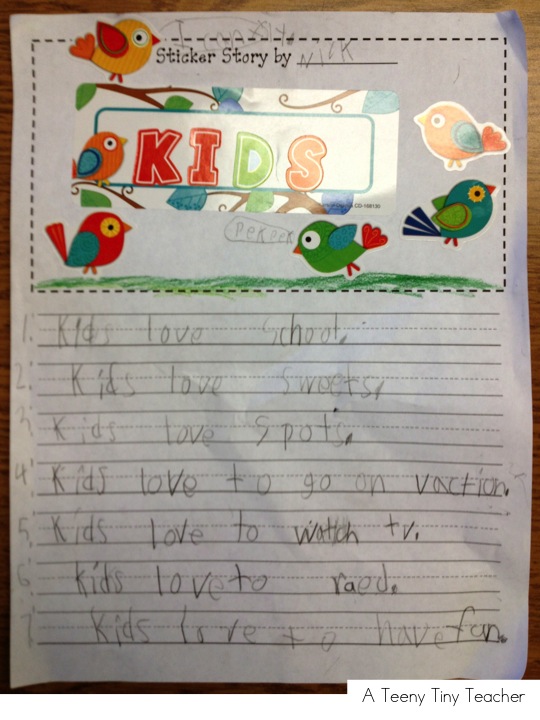 I can fly.
Sticker Story by Nick
KIDS
CD-168130
PeKeek
1. Kids love School.
2. Kids love sweets.
3. Kids love spots.
4. Kids love to go on vaction.
5. Kids love to watch tv.
6. Kids love to raed.
7. Kids love to have fun.
A Teeny Tiny Teacher